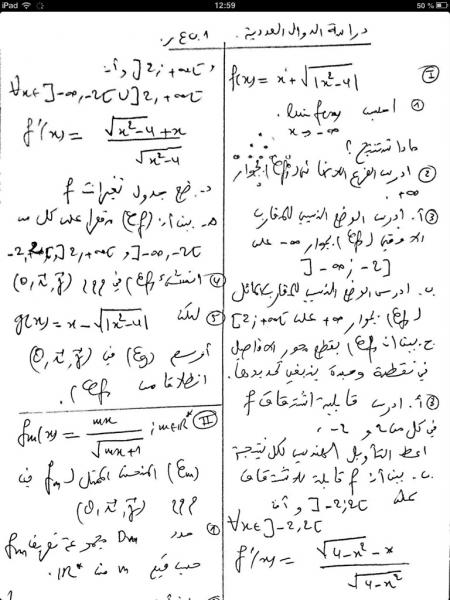 iPad
12:59
50 %
دراسة الدوال العددية.
I
f(x) = x + √|x²-4|
① احسب lim f(x)
x → -∞
ماذا تستنتج؟
② ادرس الفرع اللانهائي لـ (Cf) بجوار
+∞
③ أ. ادرس الوضع النسبي للمقارب
الأفقي لـ (Cf) بجوار -∞ على
]-∞; -2]
ب. ادرس الوضع النسبي للمقارب المائل
لـ (Cf) بجوار +∞ على [2; +∞[
ج. بين أن (Cf) يقطع محور الأفاصيل
في نقطة وحيدة ينبغي تحديدها.
③ أ. ادرس قابلية اشتقاق f
في كل من 2 و -2.
اعط التأويل الهندسي لكل نتيجة
ب. بين أن f قابلة للاشتقاق
على ]-2; 2[ و أن
∀x∈]-2, 2[
f'(x) = (√4-x² - x) / √4-x²
1. س ع ر.
]2; +∞[ و أن
∀x∈]-∞, -2[∪]2, +∞[
f'(x) = (√x²-4 + x) / √x²-4
د. ضع جدول تغيرات f
هـ. بين أن (Cf) مقعر على كل من
]-∞, -2[ و ]2, +∞[
④ انشئ (Cf) في م م م (O, i, j)
⑤ ليكن g(x) = x - √|x²-4|
أرسم (Cg) في (O, i, j)
انطلاقا من (Cf).
II
fm(x) = mx / √mx+1 ; m∈ℝ*
(Cm) المنحنى الممثل لـ fm في
م م م (O, i, j)
① حدد Dm مجموعة تعريف fm
حسب قيم m من ℝ*.